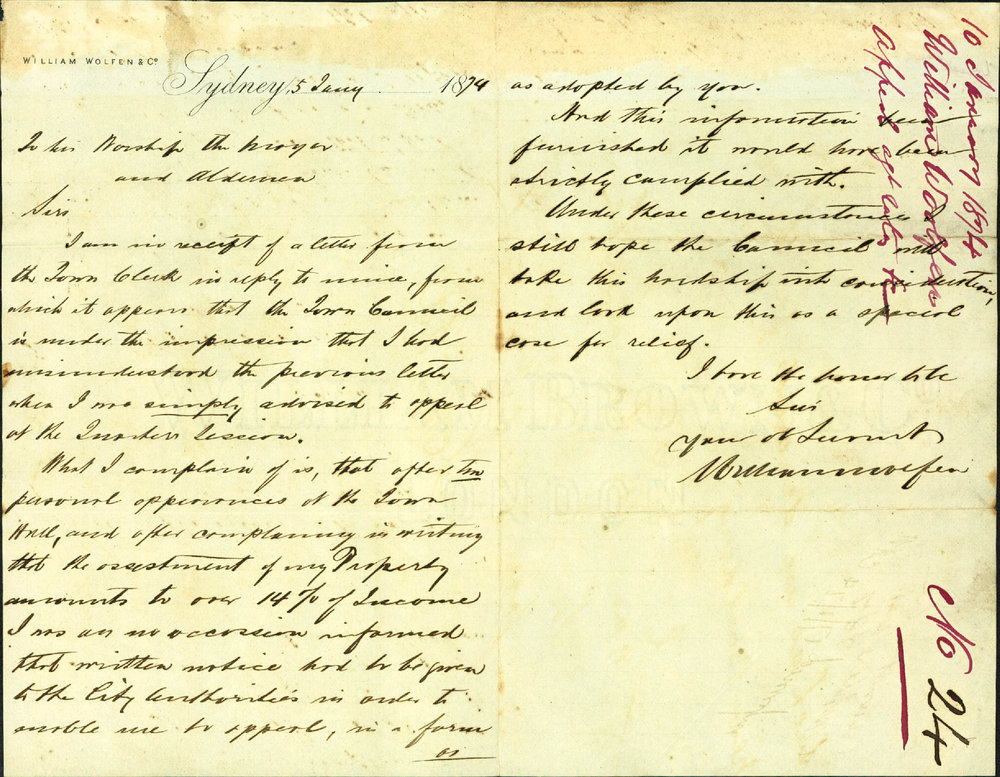 WILLIAM WOLFEN & Co
Sydney, 5 Jany 1874
To his Worship the Mayor
and Aldermen
Sirs
I am in receipt of a letter from
the Town Clerk in reply to mine, from
which it appears that the Town Council
is under the impression that I had
misunderstood the previous letter
when I was simply advised to appeal
at the Quarters Session.
What I complain of is, that after two
personal appearances at the Town
Hall, and after complaining in writing
that the assestment of my Property
amounts to over 14% of Income
I was on no occassion informed
that written notice had to be given
to the City Authorities in order to
enable me to appeal, in a form
as
as adopted by you.
Had this information been
furnished it would have been
strictly complied with.
Under these circumstances I
still hope the Council will
take this hardship into consideration,
and look upon this as a special
case for relief.
I have the honor to be
Sirs
Your Ob Servant
William Wolfen
10 January 1874
William Wolfen
Appeal agt rates
No 24